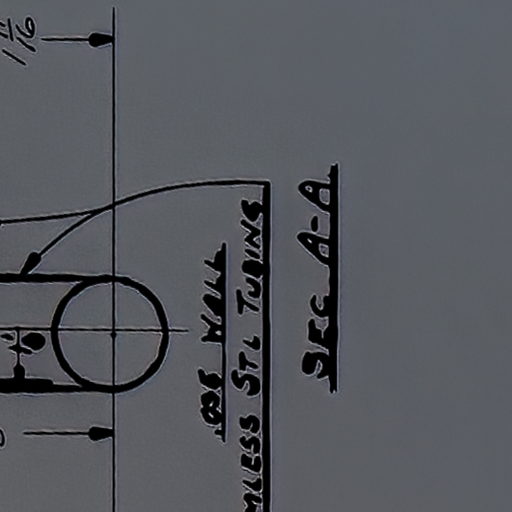 1 11/16
WALL
MLESS STL TUBING
SEC A-A